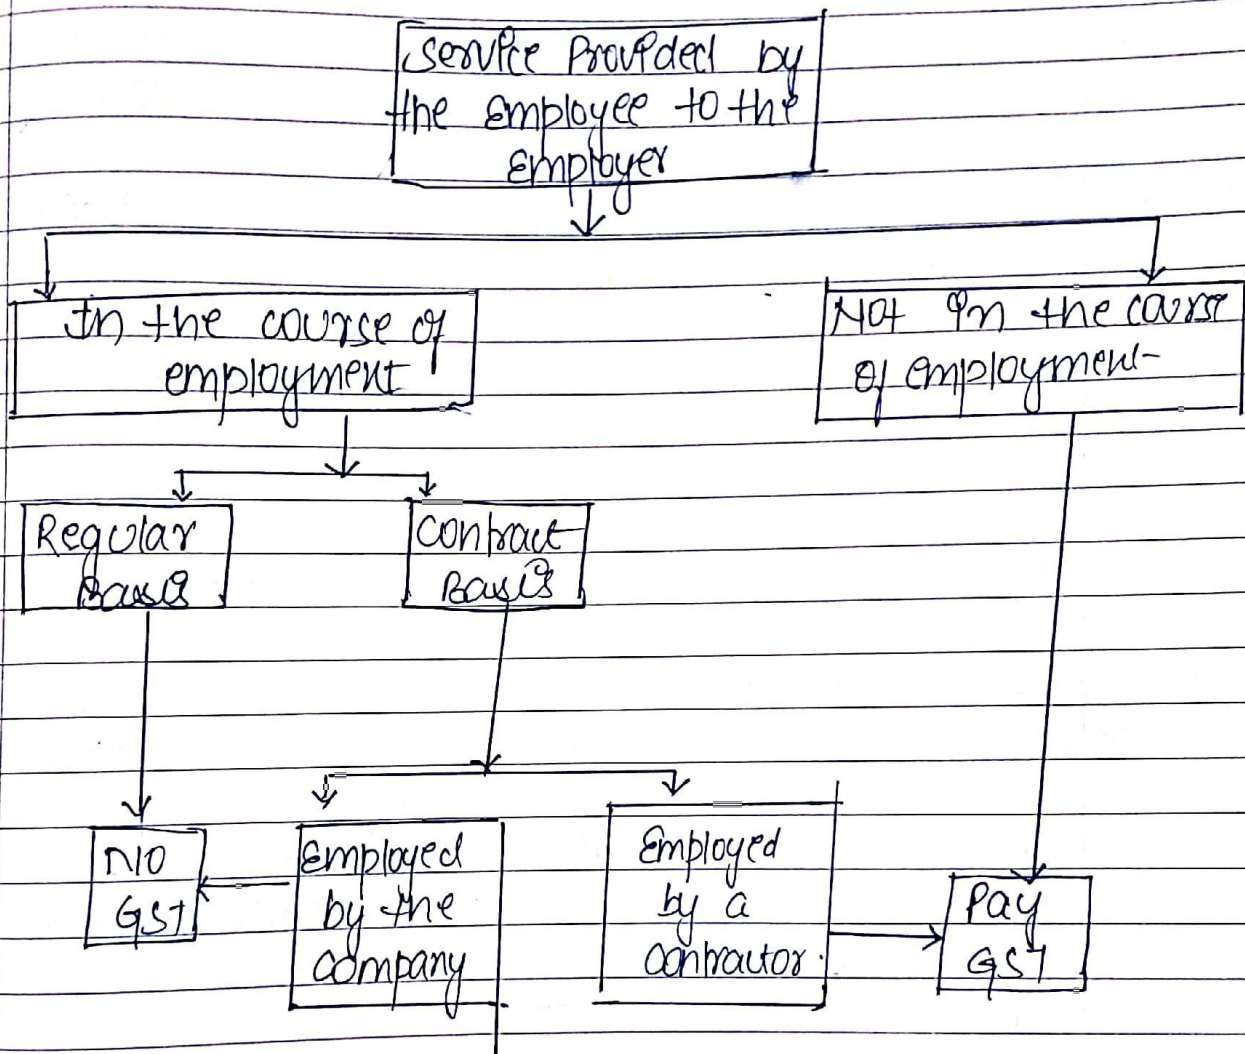 Service Provided by
the Employee to the
Employer
In the course of
employment
Not in the course
of employment
Regular
Basis
Contract
Basis
NO
GST
Employed
by the
company
Employed
by a
contractor.
Pay
GST